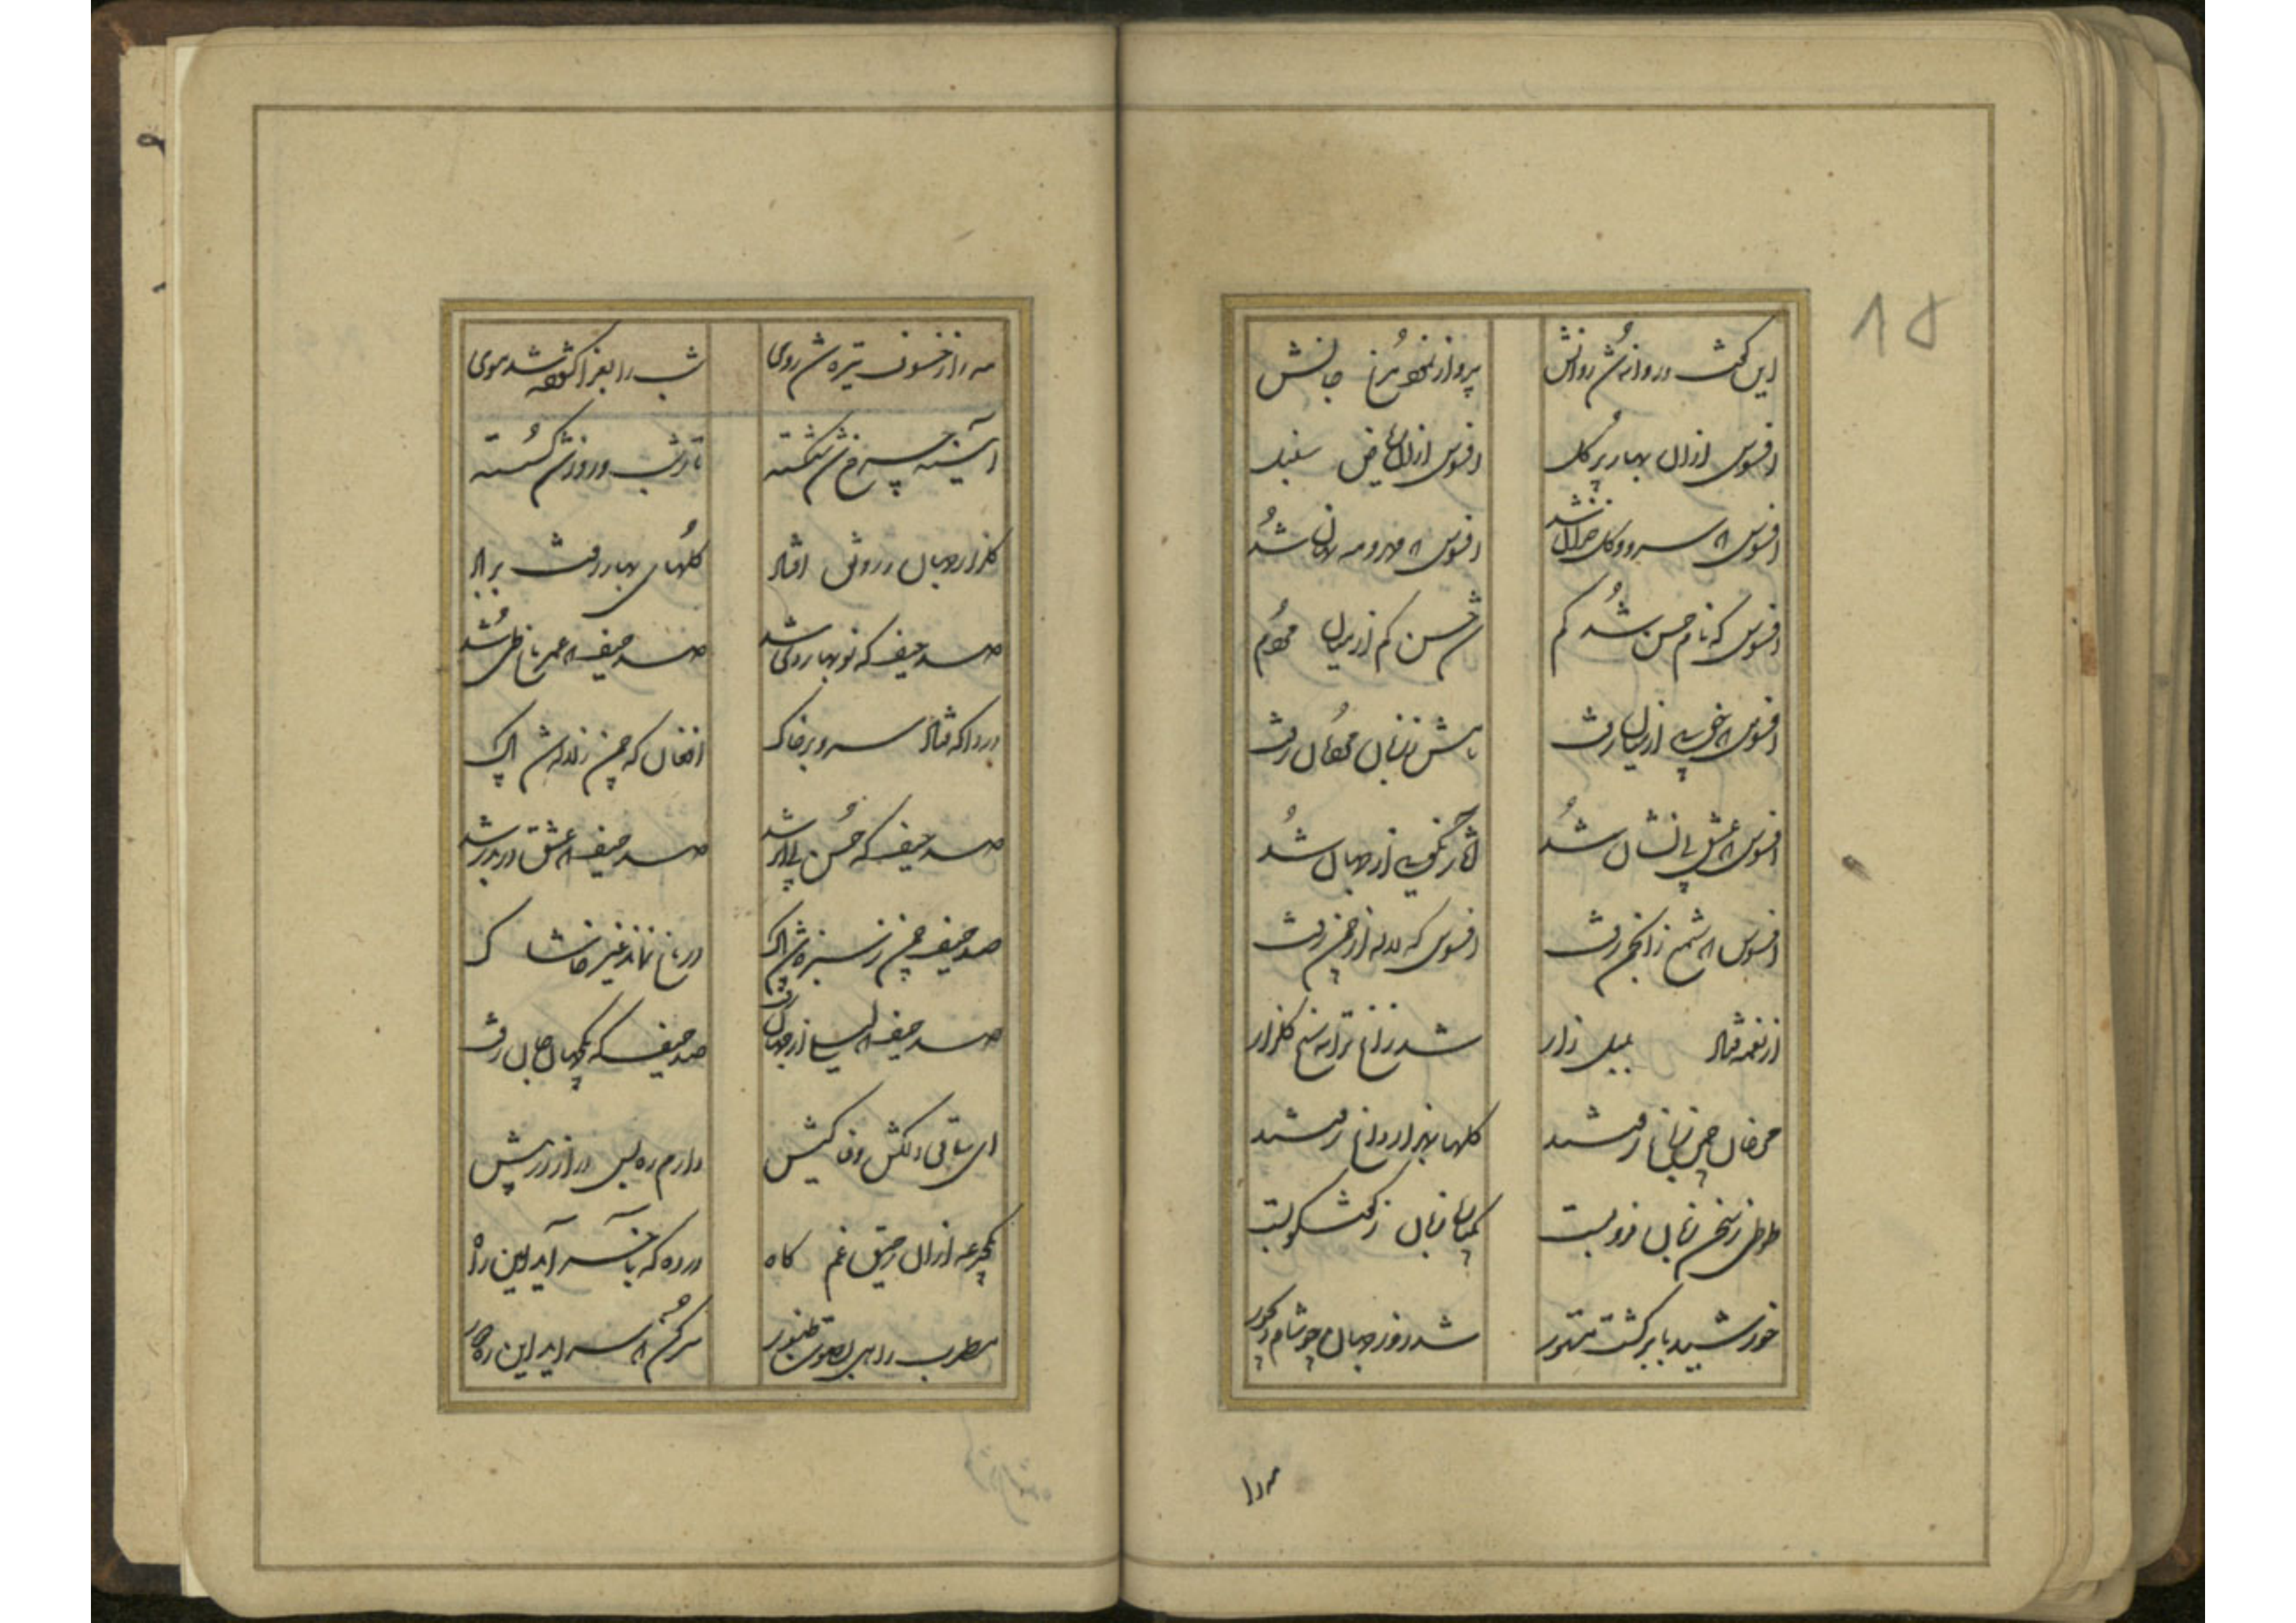 18
این گفت و روانه شد روانش پرواز نمود مرغ جانش
افسوس ازان بهار پر گل افسوس ازان ریاض سنبل
افسوس که سرو و گل خزان شد افسوس که مهر و مه نهان شد
افسوس که نام حسن شد کم شد حسن کم از میان مردم
افسوس که خوبی از میان رفت
افسوس که عشق بی نشان شد آثار نکویی از جهان شد
افسوس که شمع ز انجمن رفت افسوس که لاله از چمن رفت
از نغمه فتاد بلبل زار شد زاغ ترانه سنج گلزار
مرغان چمن ز باغ رفتند گلها به هزار داغ رفتند
طوطی ز سخن زبان فرو بست
خورشید بابر گشت مستور شد روز جهان چو شام دیجور
مه را
مه را ز خسوف تیره شد روی شب را بعزا گشوده شد موی
آیینه چرخ شد شکسته تار شب و روز شد گسسته
گلزار جهان ز رونق افتاد گلهای بهار رفت بر باد
صد حیف که نوبهار دی شد صد حیف که عمر باغ طی شد
دردا که فتاد سرو بر خاک افغان که چمن ز لاله شد پاک
صد حیف که حسن بی اثر شد صد حیف که عشق در بدر شد
صد حیف چمن ز سبزه شد پاک در باغ نماند غیر خاشاک
صد حیف که لیلی از جهان رفت صد حیف که
ای ساقی دلکش وفا کیش دارم ره بس دراز در پیش
یکجرعه ازان رحیق غم کاه در ده که بآخر آید این راه
مطرب راهی بصوت طنبور سر کن که سر آید این ره دور